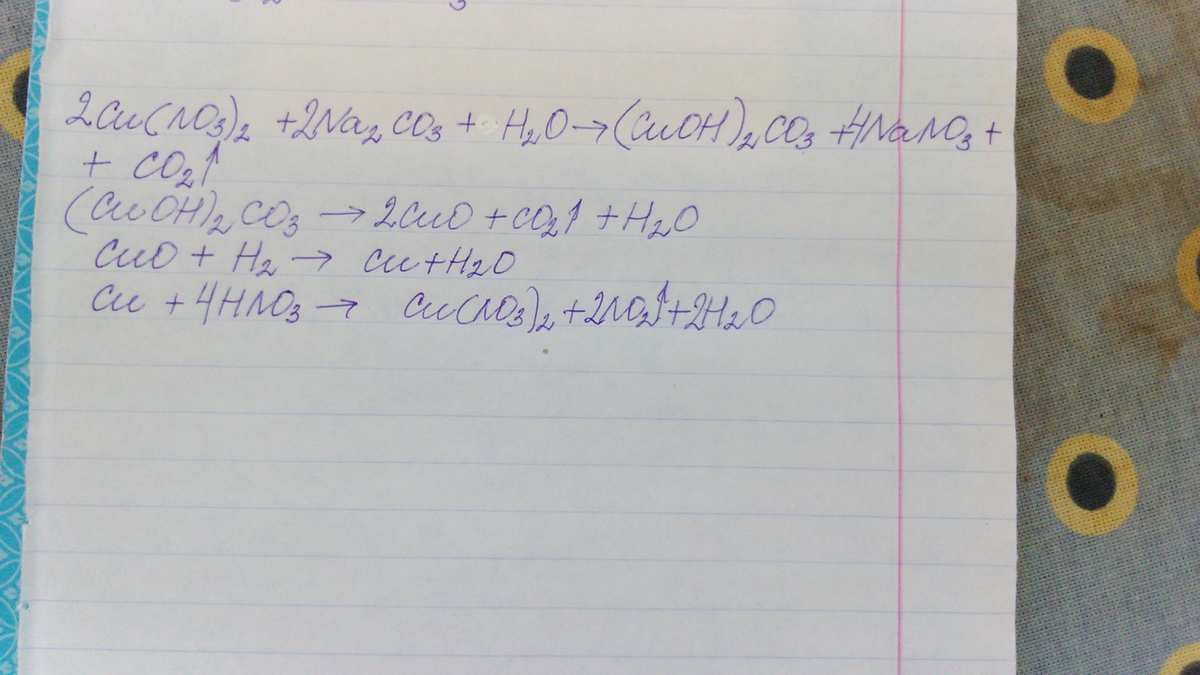 2Cu(NO₃)₂ + 2Na₂CO₃ + H₂O → (CuOH)₂CO₃ + 4NaNO₃ +
+ CO₂↑
(CuOH)₂CO₃ → 2CuO + CO₂↑ + H₂O
CuO + H₂ → Cu + H₂O
Cu + 4HNO₃ → Cu(NO₃)₂ + 2NO₂↑ + 2H₂O